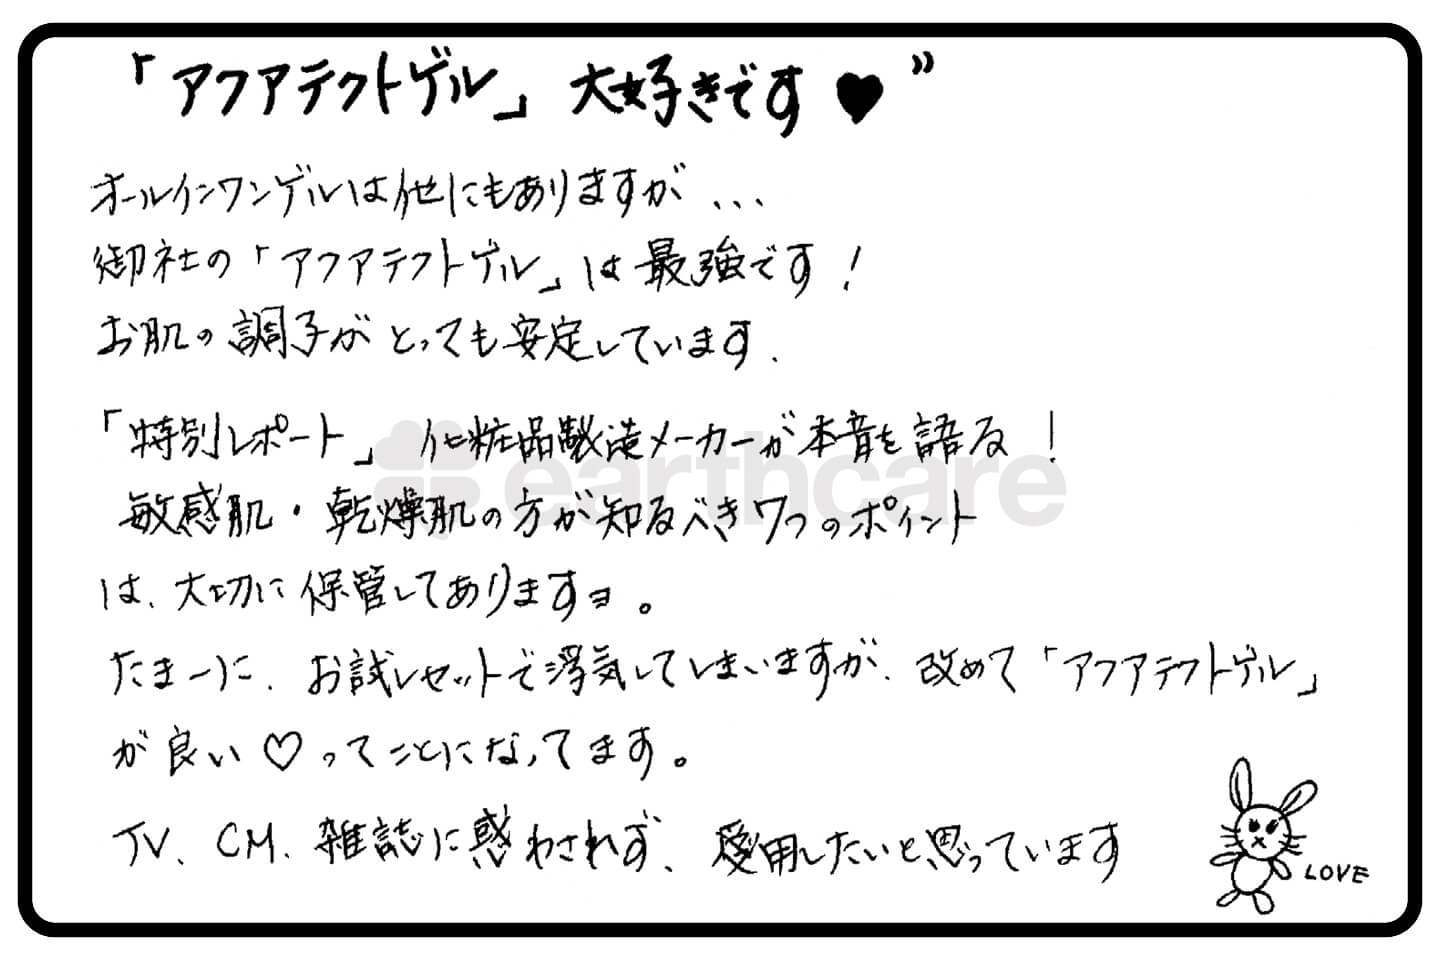 「アクアテクトゲル」大好きです♥”
オールインワンゲルは他にもありますが...
御社の「アクアテクトゲル」は最強です！
お肌の調子がとっても安定しています.
「特別レポート」 化粧品製造メーカーが本音を語る！
敏感肌・乾燥肌の方が知るべき7つのポイント
は、大切に保管してありますョ。
たまーに、お試しセットで浮気してしまいますが、改めて「アクアテクトゲル」
が良い♡ってことになってます。
TV、CM、雑誌に惑わされず、愛用したいと思っています
LOVE
earthcare